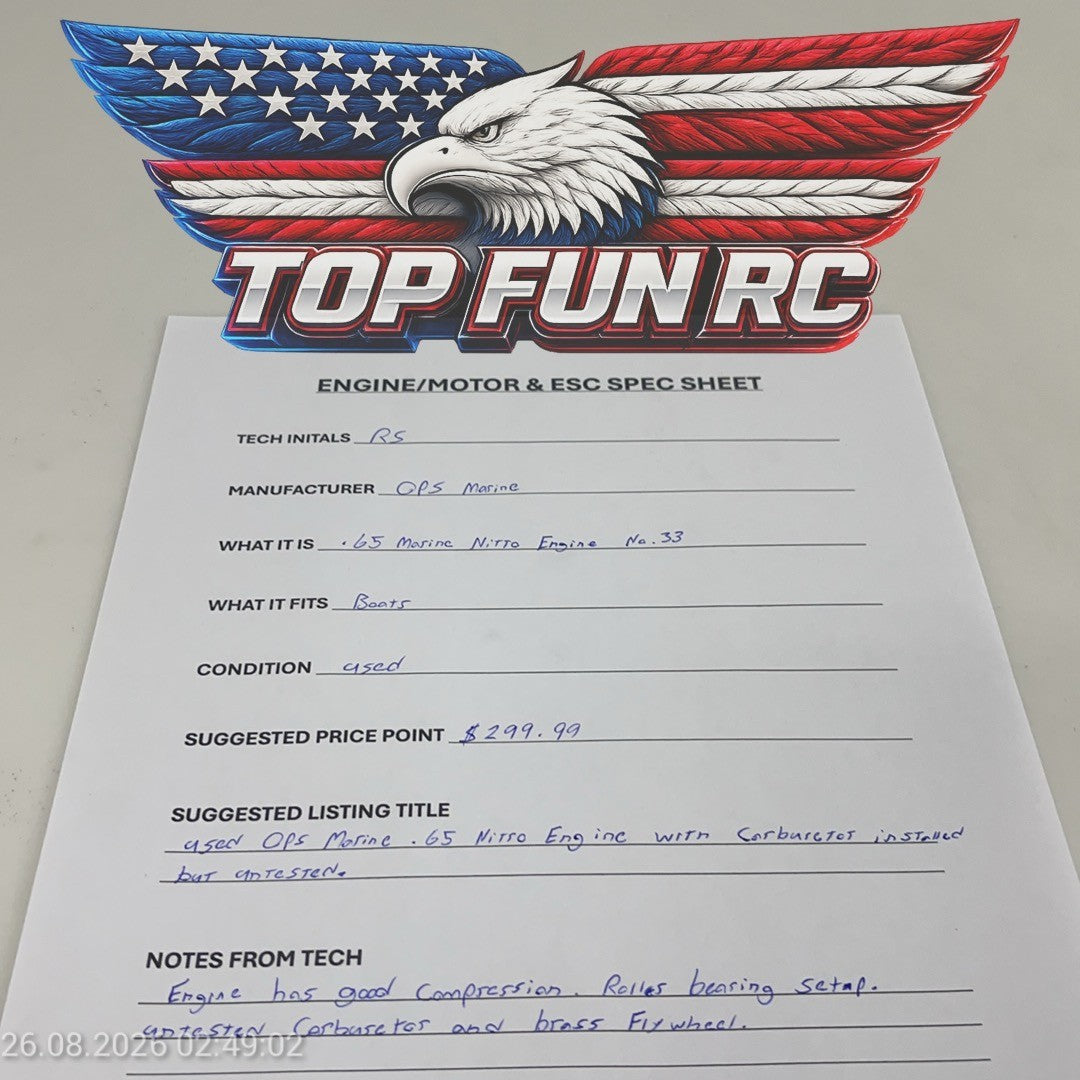 TOP FUN RC
ENGINE/MOTOR & ESC SPEC SHEET
TECH INITALS RS
MANUFACTURER OPS Marine
WHAT IT IS .65 Marine Nitro Engine No.33
WHAT IT FITS Boats
CONDITION used
SUGGESTED PRICE POINT $299.99
SUGGESTED LISTING TITLE
used OPS Marine .65 Nitro Engine with Carburetor installed
but untested.
NOTES FROM TECH
Engine has good compression. Roller bearing setup.
untested Carburetor and brass Flywheel.
26.08.2026 02:49:02